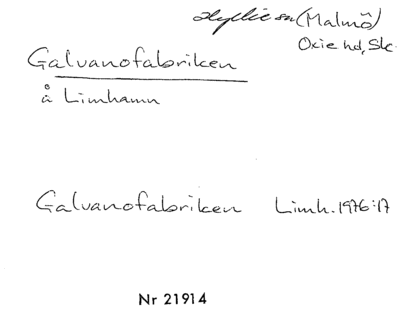 Hyllie sn (Malmö)
Oxie hd, Sk.
Galvanofabriken
å Limhamn
Galvanofabriken Limh. 1976:17
Nr 21914